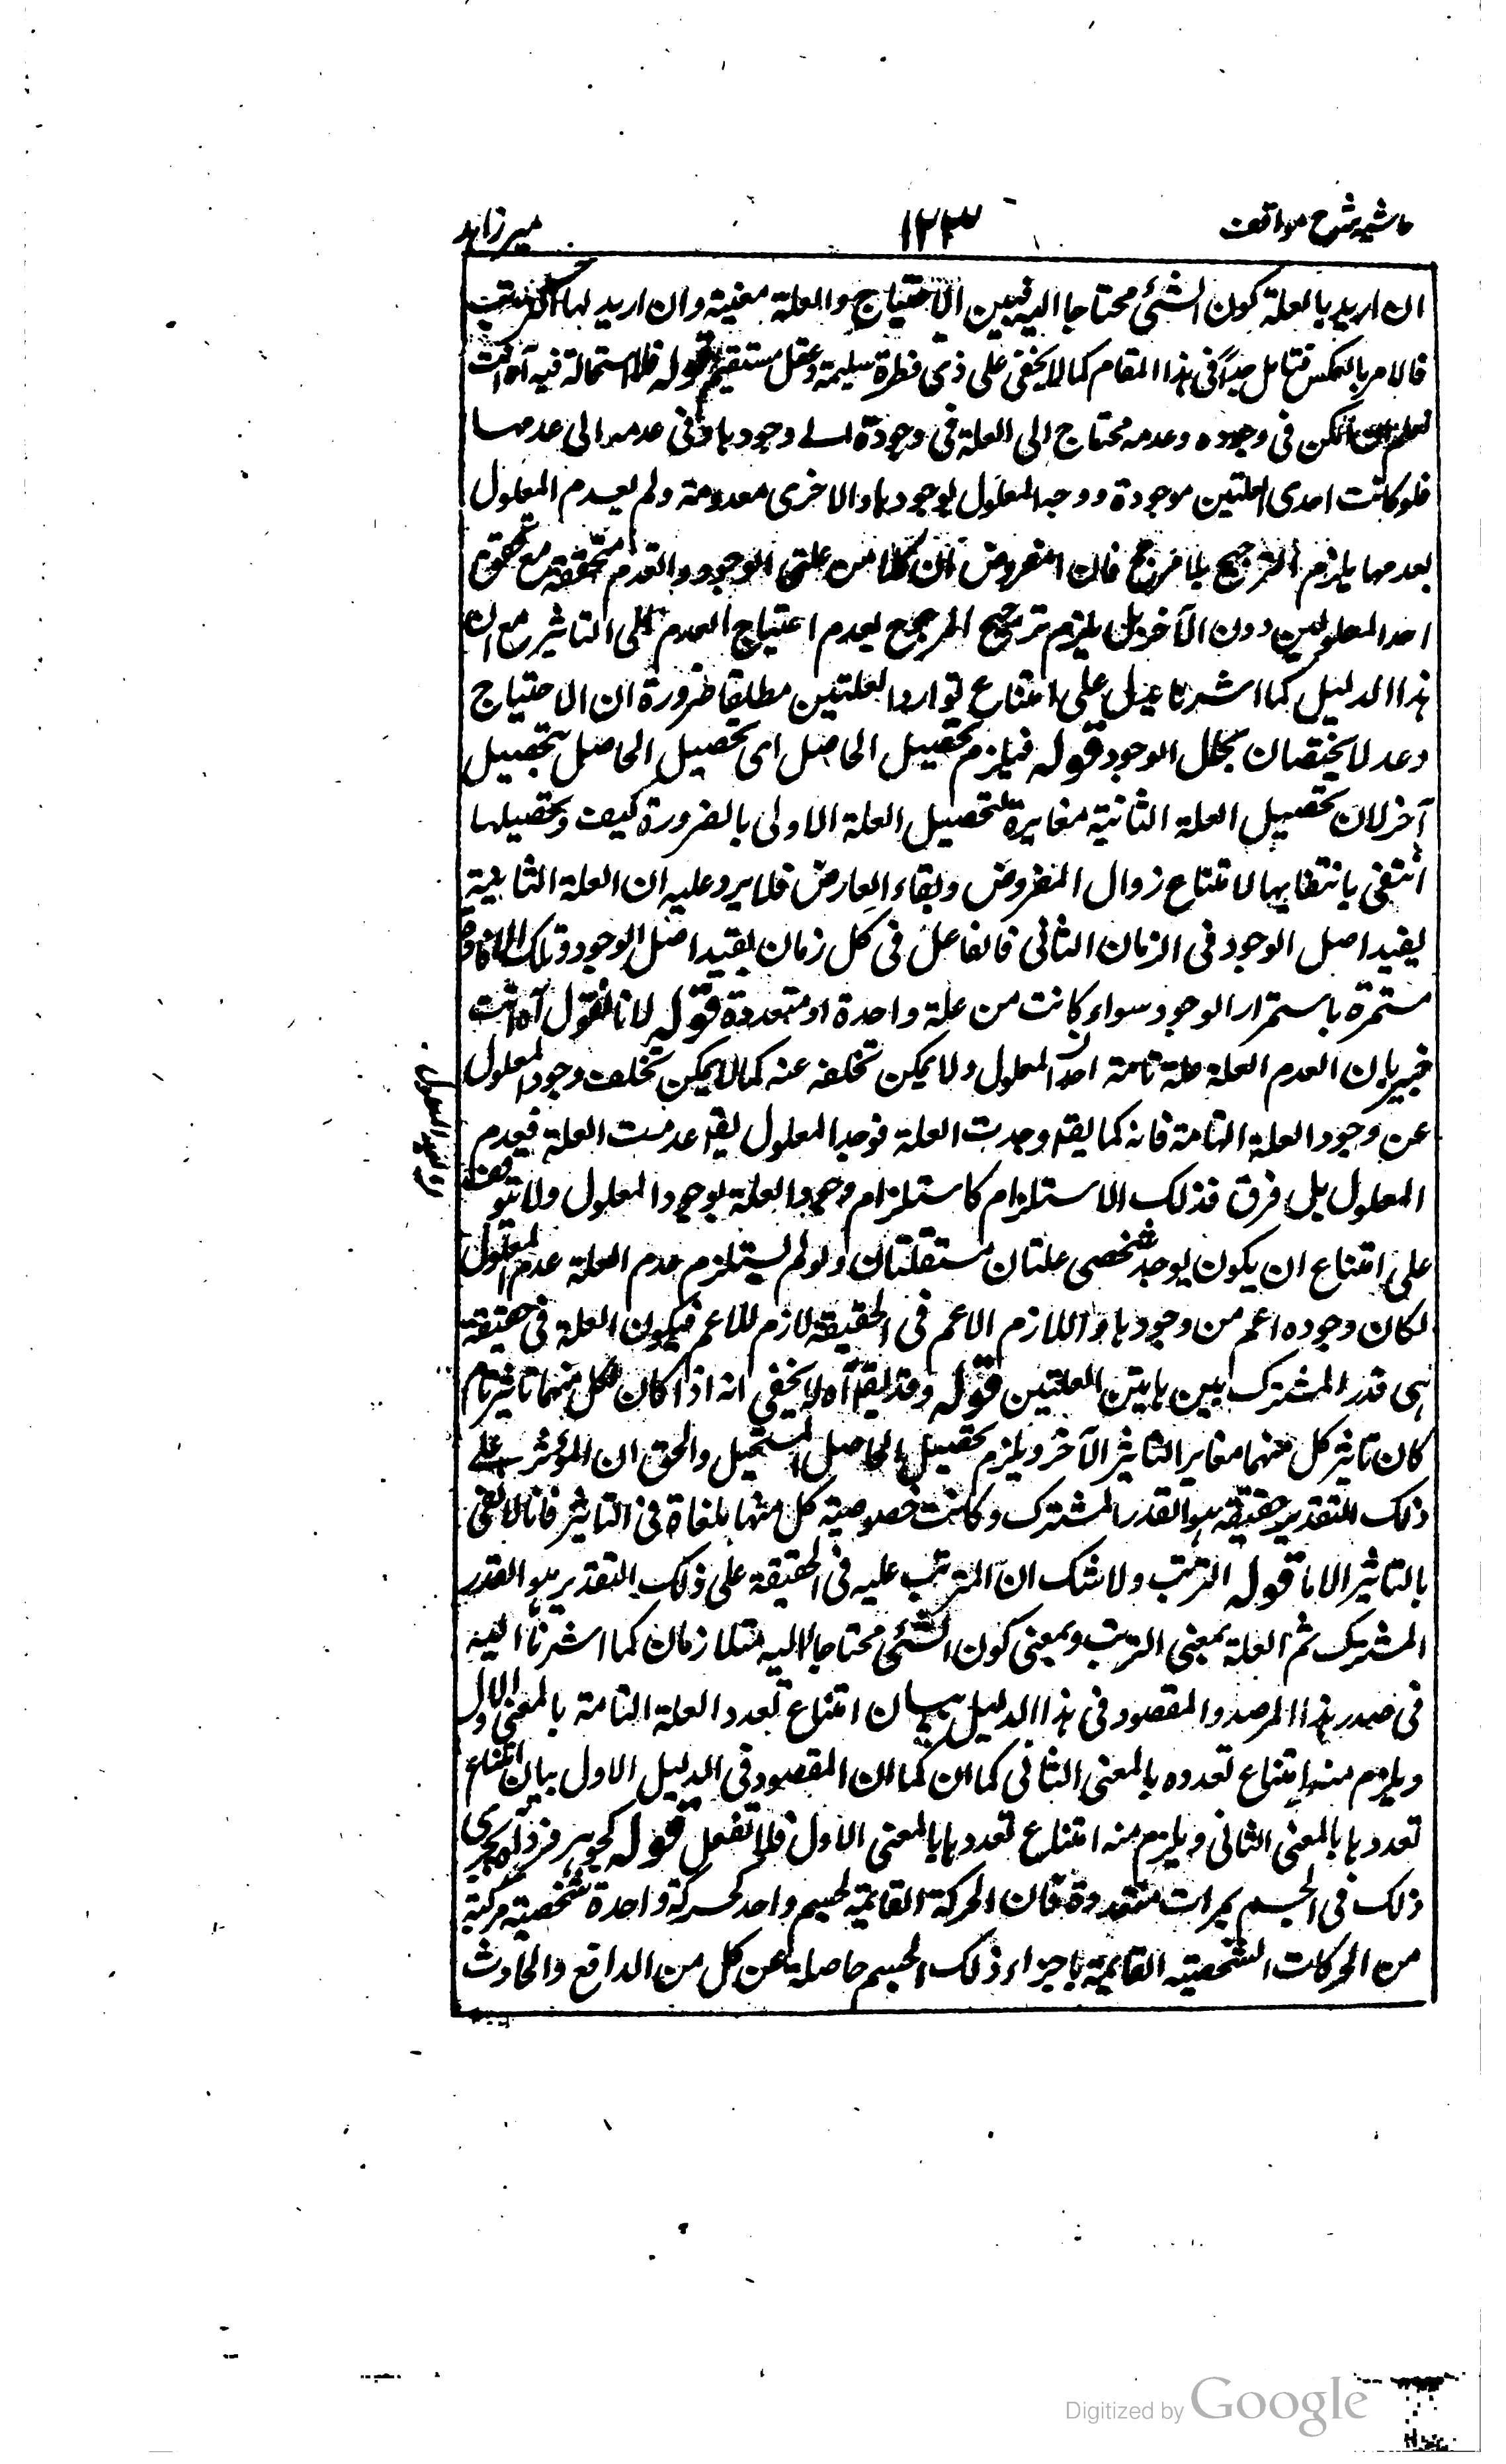 حاشیه شرح مواقف
١٢٣
میر زاهد
ان ارید بالعلة کون الشئ محتاجا الیه فبین الاحتیاج والعلة معیته وان ارید بها الترتب
فالامر بالعکس فتامل جیدا فی هذا المقام کما لا یخفی علی ذی فطرة سلیمة وعقل مستقیم قوله فلا استحالة فیه آه انت
تعلم ان الممکن فی وجوده وعدمه محتاج الی العلة فی وجوده الے وجودها وفی عدمه الی عدمها
فلو کانت احدی العلتین موجودة ووجد المعلول بوجودها والاخری معدومة ولم یعدم المعلول
بعدمها یلزم الترجیح بلا مرجح فان المفروض ان کلا من علتی الوجود والعدم متحققة مع تحقق
احد المعلولین دون الآخر بل یلزم ترجیح المرجوح لعدم احتیاج العدم الی التاثیر مع ان
هذا الدلیل کما اشرنا یدل علی امتناع توارد العلتین مطلقا ضرورة ان الاحتیاج
وعدمه لا یختصان بعلل الوجود قوله فیلزم تحصیل الحاصل ای تحصیل الحاصل بتحصیل
آخر لان تحصیل العلة الثانیة مغایرة لتحصیل العلة الاولی بالضرورة کیف وتحصیلها
انتفی بانتفایها لامتناع زوال المفروض وبقاء العارض فلا یرد علیه ان العلة الثانیة
یفید اصل الوجود فی الزمان الثانی فالفاعل فی کل زمان یفید اصل الوجود وتلک الافاضة
مستمرة باستمرار الوجود سواء کانت من علة واحدة او متعددة قوله لانا نقول آه انت
خبیر بان العدم العلة علة تامة لعدم المعلول ولا یمکن تخلفه عنه کما لا یمکن تخلف وجود المعلول
عن وجود العلة التامة فانه کما یقه وجدت العلة فوجد المعلول یقه عدمت العلة فیعدم
المعلول بل فرق فذلک الاستلزام کاستلزام وجود العلة بوجود المعلول ولا یتوقف
علی امتناع ان یکون یوجد شخصی علتان مستقلتان ولو لم یستلزم عدم العلة عدم المعلول
لکان وجوده اعم من وجودها واللازم الاعم فی الحقیقة لازم للاعم فیکون العلة فی حقیقة
هی قدر المشترک بین هاتین العلتین قوله وقد یقه آه لا یخفی انه اذا کان لکل منهما تاثیر تام
کان تاثیر کل منهما مغایر التاثیر الآخر ویلزم تحصیل الحاصل المستحیل والحق ان المؤثر علے
ذلک التقدیر حقیقة هو القدر المشترک وکانت خصوصیة کل منها ملغاة فی التاثیر فانا لا نعنی
بالتاثیر الا ما قوله الترتب ولا شک ان المترتب علیه فی الحقیقة علی ذلک التقدیر هو القدر
المشترک ثم العلة بمعنی الترتب وبمعنی کون الشئ محتاجا الیه متلازمان کما اشرنا الیه
فی صدر هذا المرصد والمقصود فی هذا الدلیل بیان امتناع تعدد العلة التامة بالمعنی الاول
ویلزم منه امتناع تعدده بالمعنی الثانی کما ان کما ان المقصود فی الدلیل الاول بیان امتناع
تعددها بالمعنی الثانی ویلزم منه امتناع تعددها بالمعنی الاول فلا تغفل قوله کجوهر فرد آه یجری
ذلک فی الجسم بمرات متعددة فان الحرکة القائمة لجسم واحد کحرکة واحدة شخصیة مرکبة
من الحرکات الشخصیة القائمة باجزاء ذلک الجسم حاصلة عن کل من الدافع والحادث
Digitized by Google